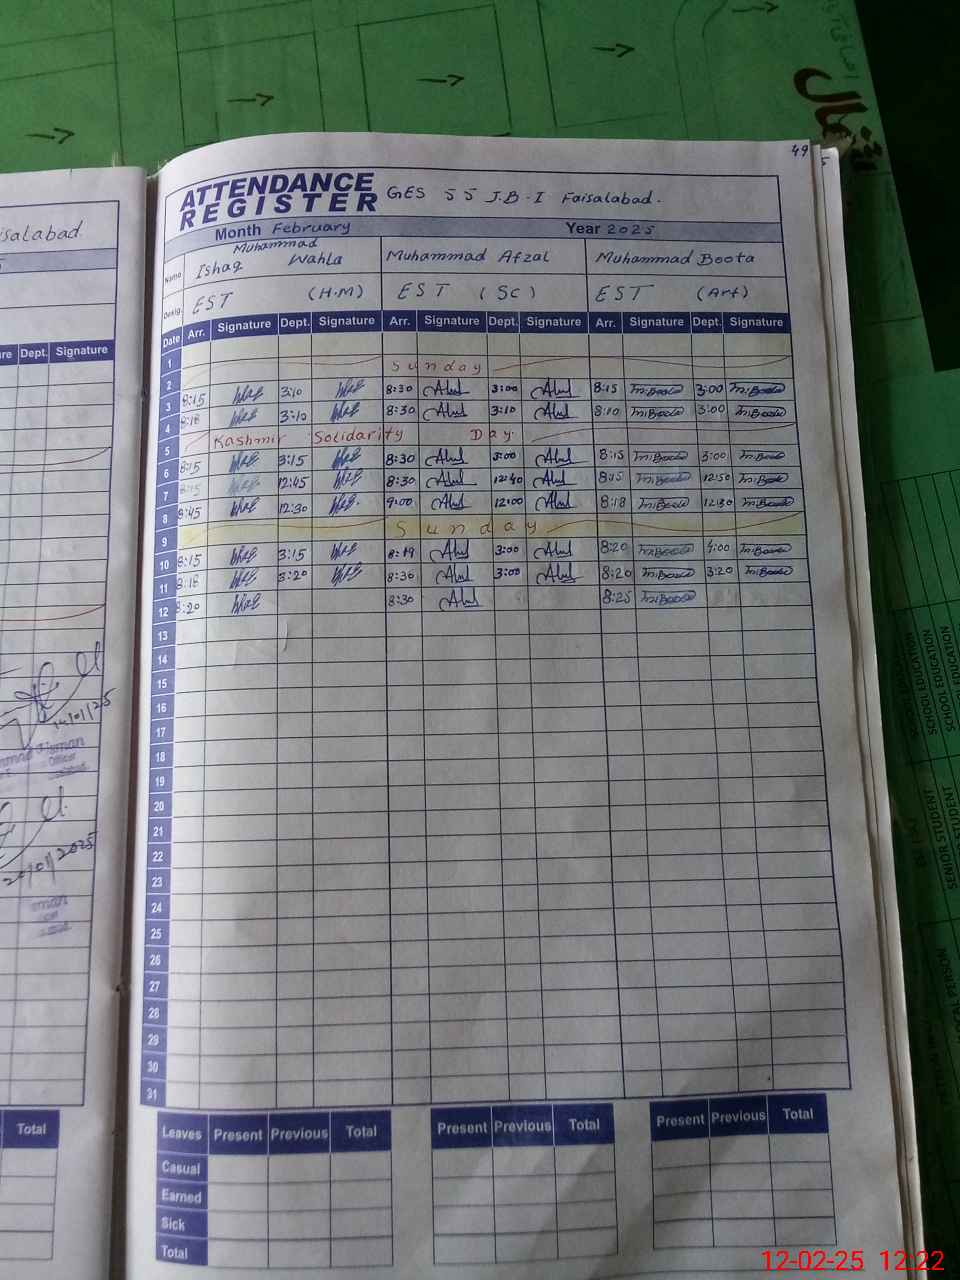 49
ATTENDANCE REGISTER GES 55 J.B-I Faisalabad.
Month February Year 2025
Name Muhammad Ishaq Wahla Muhammad Afzal Muhammad Boota
Desig. EST (H.M) EST (SC) EST (Art)
Date Arr. Signature Dept. Signature Arr. Signature Dept. Signature Arr. Signature Dept. Signature
1
2 Sunday
3 8:15 3:10 8:30 3:00 8:15 M.Boota 3:00 M.Boota
4 8:18 3:10 8:30 3:10 8:10 M.Boota 3:00 M.Boota
5 Kashmir Solidarity Day.
6 8:15 3:15 8:30 3:00 8:15 M.Boota 3:00 M.Boota
7 8:15 12:45 8:30 12:40 8:15 M.Boota 12:50 M.Boota
8 8:45 12:30 9:00 12:00 8:18 M.Boota 12:30 M.Boota
9 Sunday
10 8:15 3:15 8:19 3:00 8:20 M.Boota 4:00 M.Boota
11 8:18 3:20 8:30 3:00 8:20 M.Boota 3:20 M.Boota
12 8:20 8:30 8:25 M.Boota
13
14
15
16
17
18
19
20
21
22
23
24
25
26
27
28
29
30
31
Leaves Present Previous Total Present Previous Total Present Previous Total
Casual
Earned
Sick
Total
isalabad.
Dept. Signature
14/01/25
Officer
20/01/2025
Total
SCHOOL EDUCATION
SCHOOL EDUCATION
SENIOR STUDENT
12-02-25 12:22